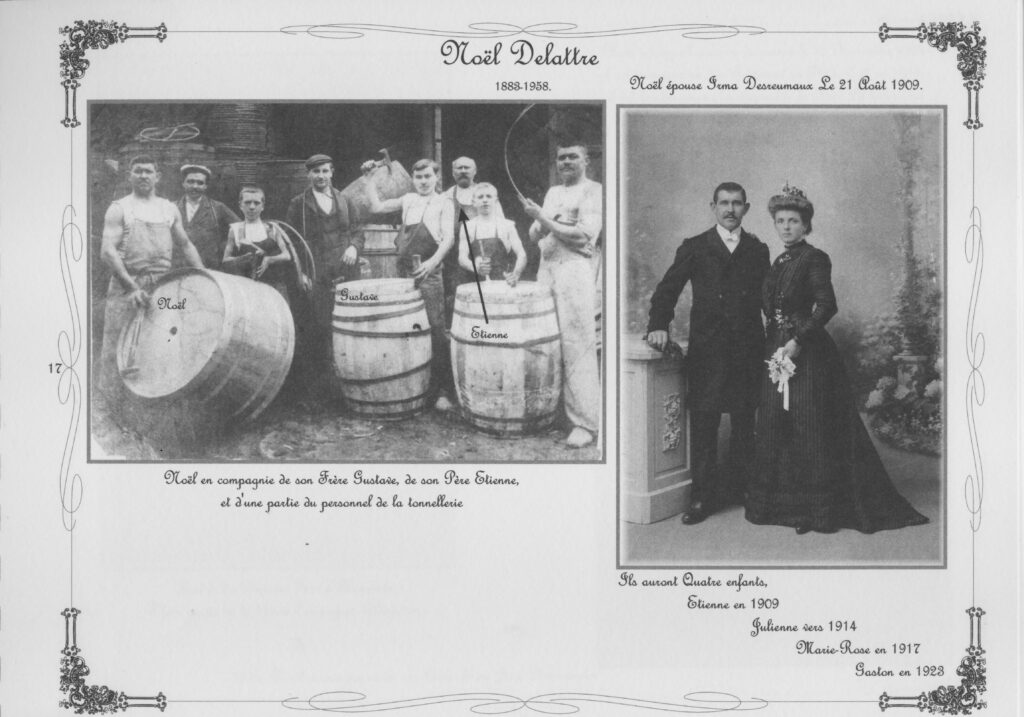 Noël Delattre
1883-1958.
Noël épouse Irma Desreumaux Le 21 Août 1909.
Noël
Gustave
Etienne
17
Noël en compagnie de son Frère Gustave, de son Père Etienne,
et d'une partie du personnel de la tonnellerie
Ils auront Quatre enfants,
Etienne en 1909
Julienne vers 1914
Marie-Rose en 1917
Gaston en 1923